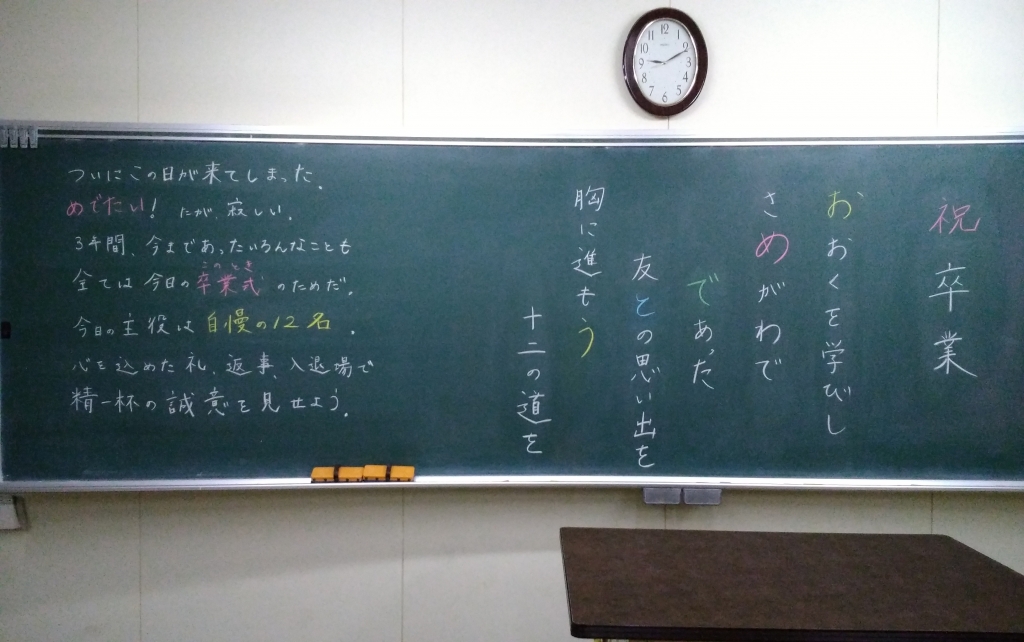 12 1 2 3 4 5 6 7 8 9 10 11
祝卒業
おおくを学びし
さめがわで
であった
友との思い出を
胸に進もう
十二の道を
ついにこの日が来てしまった。
めでたい! だが、寂しい。
3年間、今まであったいろんなことも
このとき
全ては今日の卒業式のためだ。
今日の主役は自慢の12名。
心を込めた礼、返事、入退場で
精一杯の誠意を見せよう。